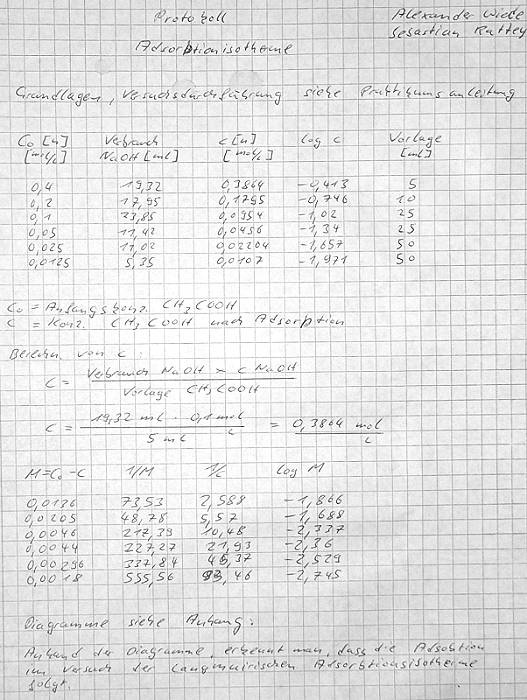 Protokoll
Alexander Wiede
Sebastian Rattey
Adsorptionisotheme
Grundlagen, Versuchsdurchführung siehe Praktikumsanleitung
C₀ [n] Verbrauch c [n] log c Vorlage
[mol/l] NaOH [ml] [mol/l] [ml]
0,4 19,32 0,3864 -0,413 5
0,2 17,95 0,1795 -0,746 10
0,1 23,85 0,0954 -1,02 25
0,05 11,42 0,0456 -1,34 25
0,025 11,02 0,02204 -1,657 50
0,0125 5,35 0,0107 -1,971 50
C₀ = Anfangskonz. CH₃COOH
C = Konz. CH₃COOH nach Adsorption
Berechn. von c:
C = Verbrauch NaOH × c NaOH
Vorlage CH₃COOH
C = 19,32 ml · 0,1 mol = 0,3864 mol
5 ml l l
M=C₀-C 1/M 1/c log M
0,0136 73,53 2,588 -1,866
0,0205 48,78 5,57 -1,688
0,0046 217,39 10,48 -2,337
0,0044 227,27 21,93 -2,36
0,00296 337,84 45,37 -2,529
0,0018 555,56 93,46 -2,745
Diagramme siehe Anhang:
Anhand der Diagramme, erkennt man, dass die Adsobtion
im Versuch der Langmuirischen Adsorbtionsisotheime
folgt.